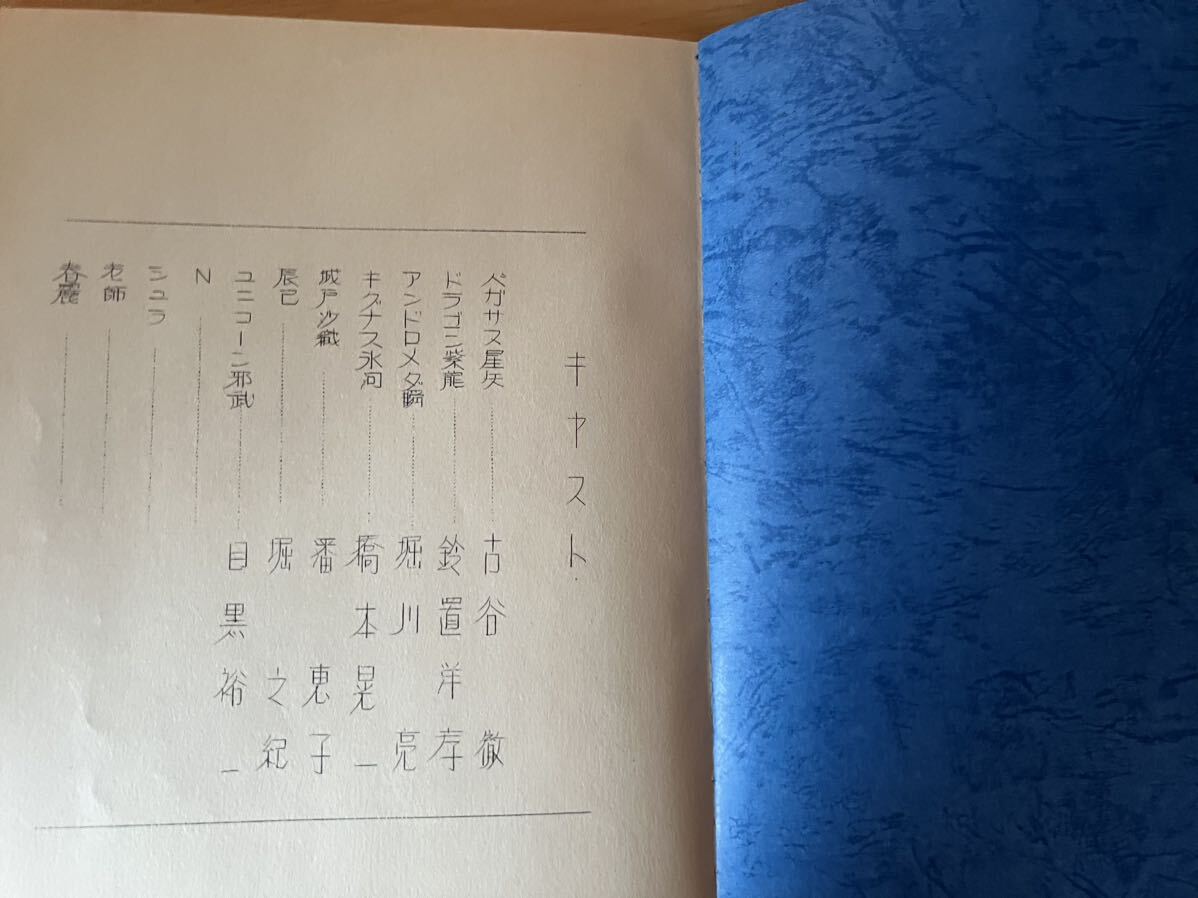 キャスト
ペガサス星矢………古谷 徹
ドラゴン紫龍………鈴置洋孝
アンドロメダ瞬………堀川 亮
キグナス氷河………橋本晃一
城戸沙織………潘 恵子
辰巳………堀 之紀
ユニコーン邪武………目黒裕一
N………
シュラ………
老師………
春麗………